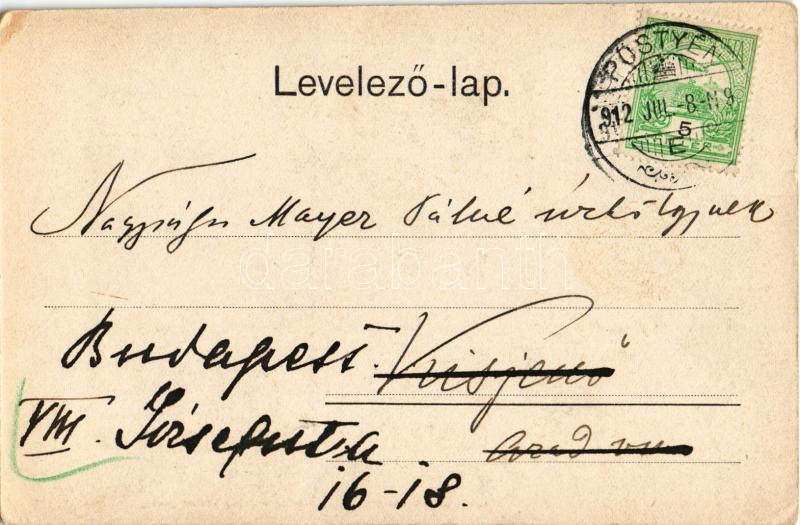 PŐSTYÉN
912 JUL.-8.-N 9
5
E
Levelező-lap.
Nagyságu Mayer Pálné úrhölgynek
darabanth
Budapest. Kisjenő
VIII. József utca Arad vm
16-18.